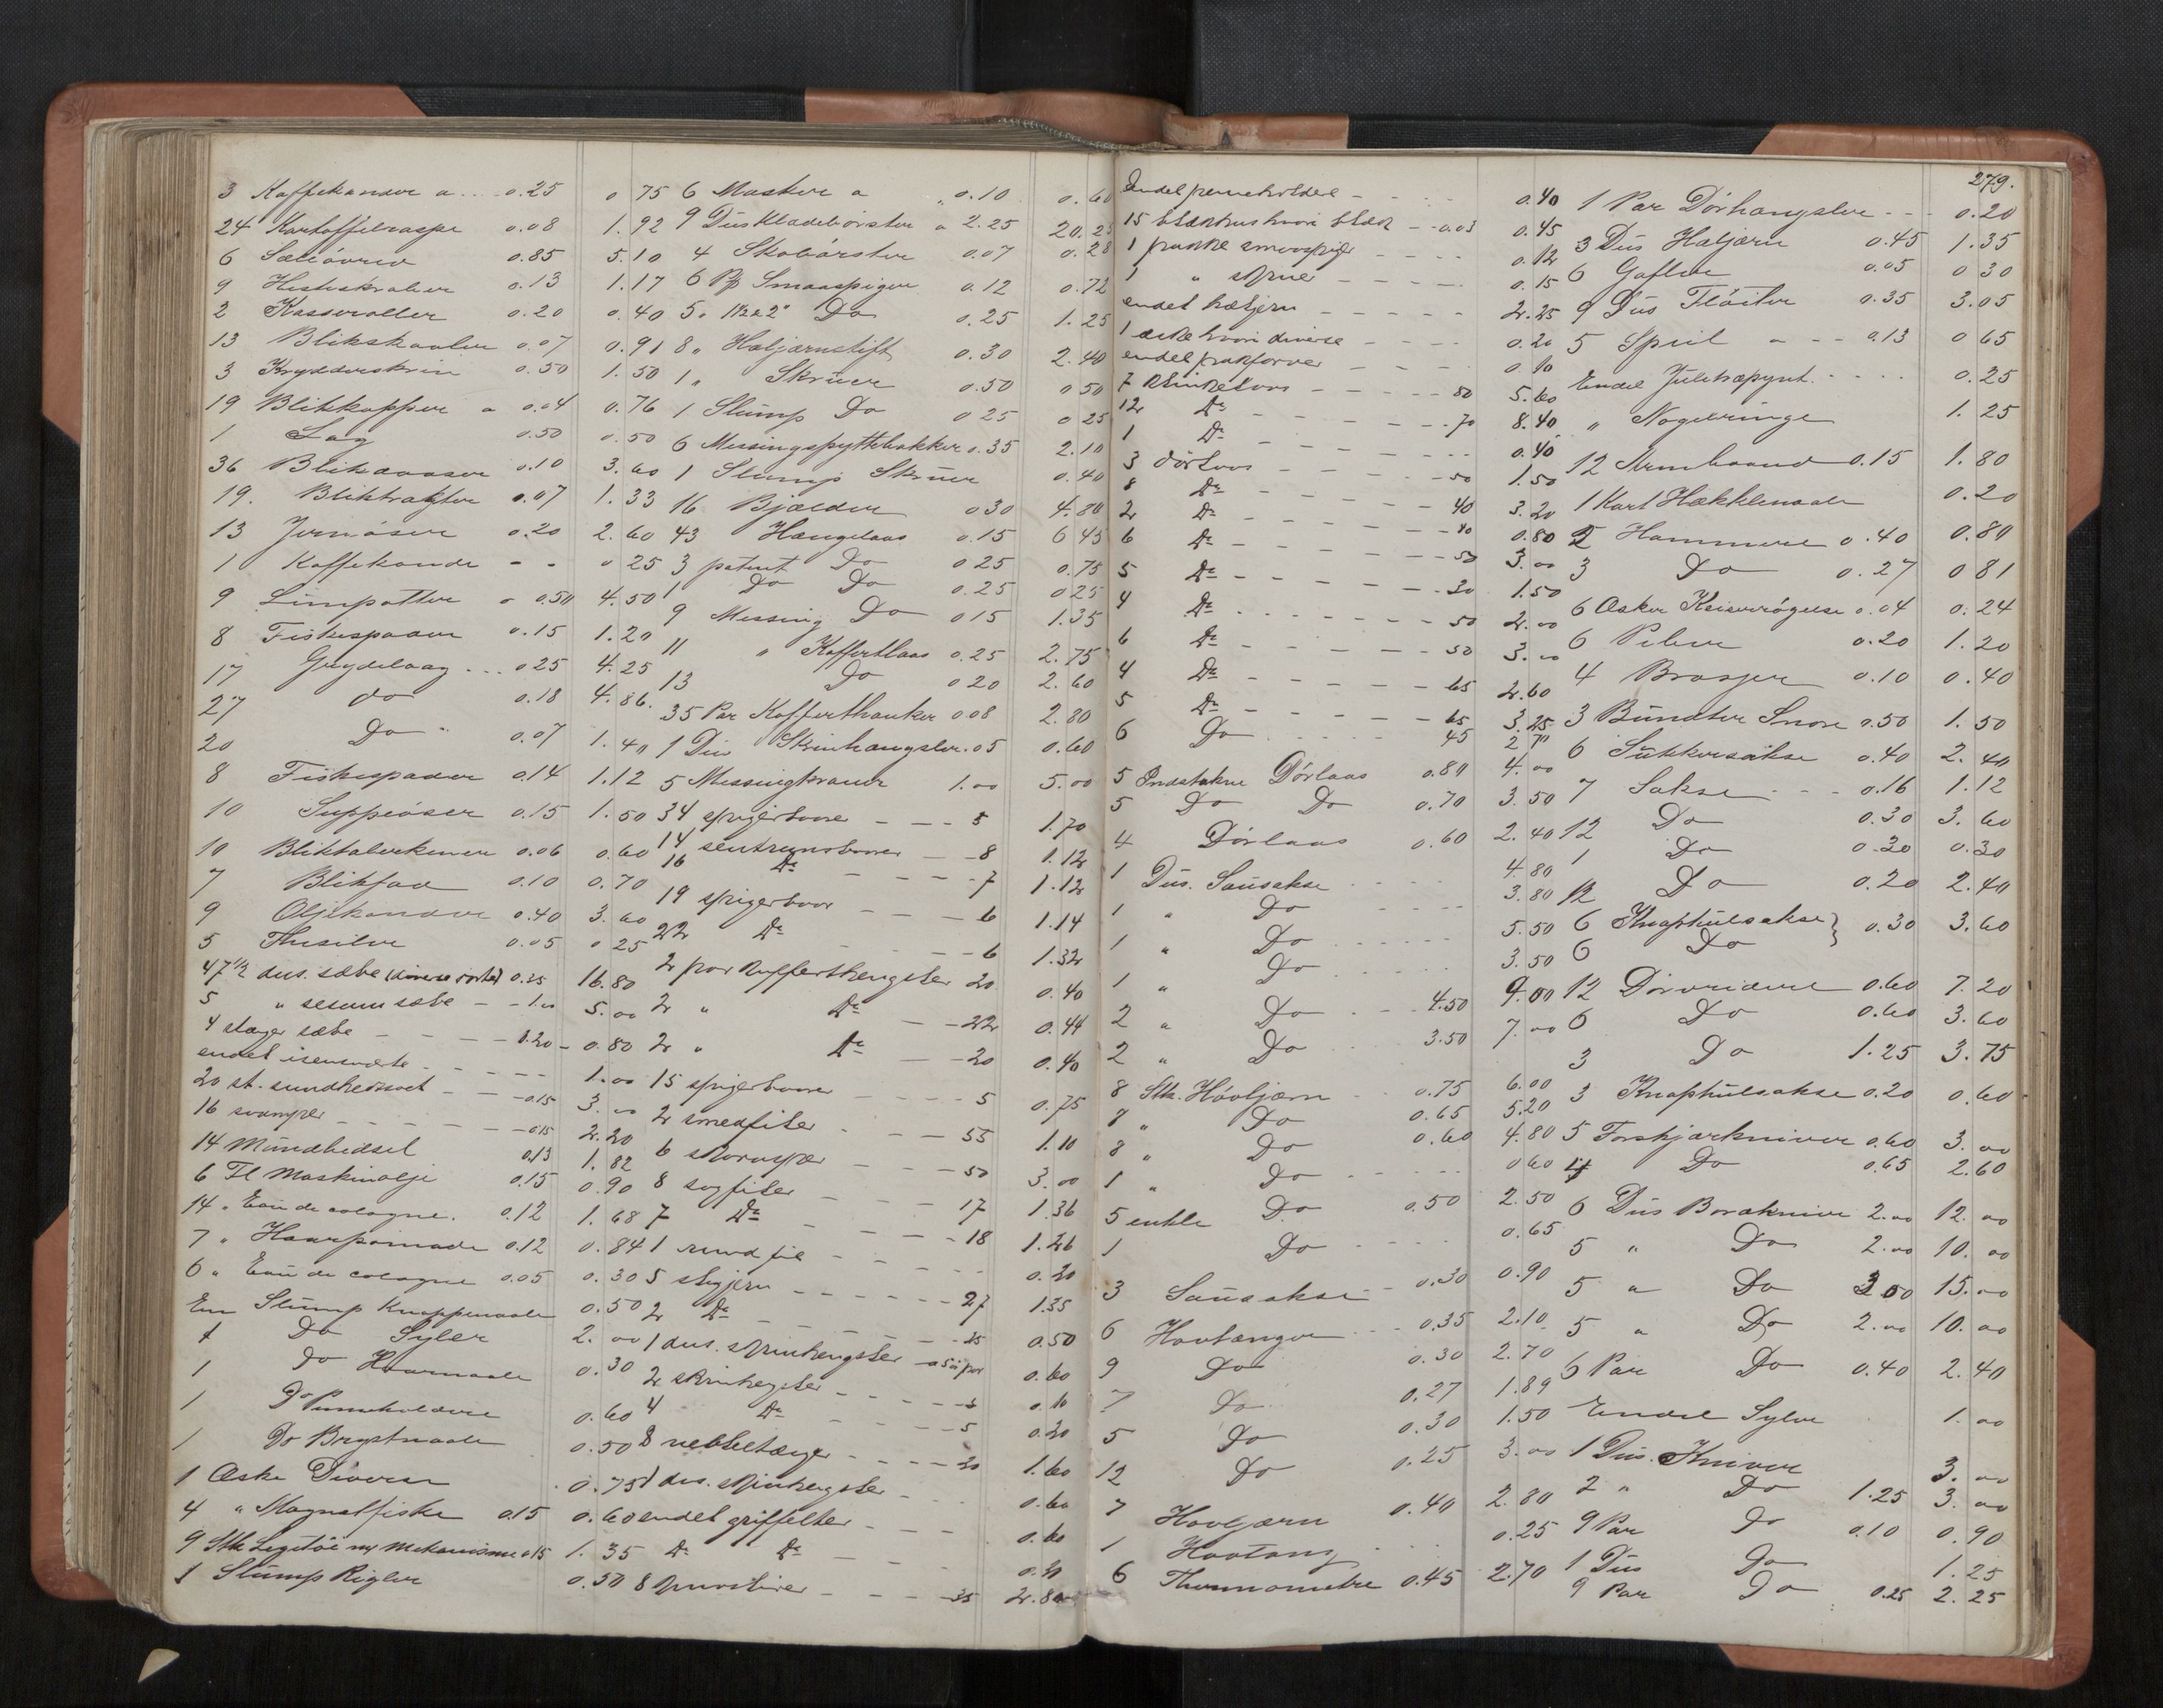 3 Kaffekander a .. 0.25 0 75
24 Kartoffelraspe 0.08 1.92
6 0.85 5.10
9 Hesteskraber 0.13 1.17
2 Kasseroller 0.20 0.40
13 Blikskaaler 0.07 0.91
3 Krydderskrin 0.50 1.50
19 Blikkopper a 0.04 0.76
1 0.50 0.50
36 Blikdaaser 0.10 3.60
19. Bliktragter 0.07 1.33
13 Jernøser 0.20 2.60
1 Kaffekande - - 0 25
9 Limpotter a 0.50 4.50
8 Fiskespader 0.15 1.20
17 Grydelaag ... 0 25 4.25
27 do 0.18 4.86.
20 Do " 0.07 1.40
8 Fiskespader 0.14 1.12
10 Suppeøser 0.15 1.50
10 Bliktalerkener 0.06 0.60
7 Blikfad 0.10 0.70
9 Oljekander 0.40 3.60
5 Thesiler 0.05 0 25
47 1/2 dus. sæbe (diverse sorter) 0.35 16.80
5 " sesam sæbe - - 1.00 5.00
4 stæger sæbe - - - - 0.20 - 0.80
endel - - - - 1.00
20 st. sundhedssvet - - - 0.15 3.00
16 svamper - - - - - 0.15 2.20
14 Mundbidsel 0.13 1.82
6 Fl Maskinolje 0.15 0.90
14 " Eau de cologne. 0.12 1.68
7 " Haarpomade 0.12 0.84
6 " Eau de cologne 0.05 0.30
Een Slump Knappenaale 0.50
1 Do Syler 2.00
1 Do Haarnaale 0.30
1 Do Penneholdere 0.60
1 Do Brystnaale 0.50
1 Æske Diverse 0.75
4 " Magnetfiske 0.15 0.60
9 Stk Legetøi m/ Mekanisme 0.15 1.35
1 Slump Rigler 0.50
6 Masker a " 0.10 0.60
9 Dus Kladebørster a 2.25 20.25
4 Skobørster 0.07 0.28
6 Pk Smaaspiger 0.12 0.72
5 " 1 1/2 a 2" Do 0.25 1.25
8 " Hæljærnstift 0.30 2.40
1 " Skruer 0.50 0 50
1 Slump Do 0 25 0 25
6 Messingspyttebakker 0.35 2.10
1 Slump Skruer 0.40
16 Bjælder 0 30 4.80
43 Hængelaas 0.15 6 45
3 patent Do 0 25 0.75
1 Do Do 0.25 0 25
9 Messing Do 0 15 1.35
11 " Koffertlaas 0.25 2.75
13 Do 0 20 2.60
35 Par Kofferthanker 0.08 2.80
1 Dus Skrinhængsler .05 0.60
5 Messingkraner 1.00 5.00
34 spigerborer - - - 5 1.70
14 sentrumsborer - - 8 1.12
16 Do - - - - 7 1.12
19 spigerbor - - - 6 1.14
22 Do - - - 6 1.32
2 par kufferthengsler 20 0.40
2 " Do - - 22 0.44
2 " Do - - 20 0.40
15 spigerborer - - - - 5 0.75
2 smedfiler - - - 55 1.10
6 - - - 50 3.00
8 sagfiler - - - 17 1.36
7 Do - - - 18 1.26
1 rund fil - - - - 0.20
5 stegjern - - - - - 27 1.35
2 Do - - - - 25 0.50
1 dus. skrinhengsler 0.60
2 skrinhengsler - - - 5 0.10
4 Do - - - 5 0.20
8 nebbetænger - - - - 20 1.60
1 dus. skrinhengsler - - 0.60
endel griffelter - - - 0.60
Do Do - - - 0.30
8 - - - 35 2.80
279.
Endel penneholdere - - - - 0.40
15 blækhus hvori blæk - - 0.03 0.45
1 pakke smaaspiger - - - - 0.12
1 " skruer - - - - 0.15
endel hæljern - - - - - 2.25
1 æske hvori diverse - - - - 0.20
endel - - - - 0.10
7 klinkelaas - - - - 80 5.60
12 Do - - - - 70 8.40
1 Do - - - - - 0.40
3 dørlaas - - - - 50 1.50
8 Do - - - - 40 3.20
2 Do - - - - 40 0.80
6 Do - - - - 50 3.00
5 Do - - - - 30 1.50
4 Do - - - - 50 2.00
6 Do - - - - 50 3.00
4 Do - - - - 65 2.60
5 Do - - - - 65 3.25
6 Do - - - - 45 2 70
5 Indstukne Dørlaas 0.80 4.00
5 Do Do 0.70 3.50
4 Dørlaas 0.60 2.40
1 Dus. Sausakse - - - 4.80
1 " Do - - - 3.80
1 " Do - - - 5.50
1 " Do - - - 3.50
2 " Do - - 4.50 9.00
2 " Do 3.50 7.00
8 Stk. Høvljærn 0.75 6.00
8 " Do 0.65 5.20
8 " Do 0.60 4.80
1 " Do - - - 0 60
5 enkle Do 0.50 2.50
1 Do - - - 0.65
3 Sausakse - 0.30 0.90
6 Hovtænger - - 0.35 2.10
9 Do 0.30 2.70
7 Do 0.27 1.89
5 Do 0.30 1.50
12 Do 0.25 3.00
7 Hovljærn 0.40 2.80
1 Hovtang - - 0.25
6 Thermometre 0.45 2.70
1 Par Dørhængsler - - - 0.20
3 Dus Hæljærn 0.45 1.35
6 Gafler 0.05 0 30
9 Dus Fløiter 0.35 3.05
5 Speil a - - 0.13 0 65
Endel Juletræpynt - - - - 0.25
" Nogleringe 1.25
12 Armbaand 0.15 1.80
1 Kart Hækklenaale 0.20
2 Hammere 0.40 0.80
3 Do 0.27 0 81
6 Æsker Keiserrøgelse 0.04 0.24
6 Piber 0.20 1.20
4 0.10 0.40
3 Bundter Snore 0.50 1.50
6 Sukkersakse 0.40 2.40
7 Sakse - - - 0.16 1.12
12 Do 0.30 3.60
1 Do 0.30 0.30
12 Do 0.20 2.40
6 Knaphulsakse } 0.30 3.60
6 Do
12 Dørvridere 0.60 7.20
6 Do 0.60 3.60
3 Do 1.25 3.75
3 Knaphulsakse 0.20 0.60
5 Forskjærkniver 0.60 3.00
4 Do 0.65 2.60
6 Dus Bordknive 2.00 12.00
5 " Do 2.00 10.00
5 " Do 3 00 15.00
5 " Do 2.00 10.00
6 Par Do 0.40 2.40
Endel Syler 1.00
1 Dus. Kniver 3.00
2 " Do 1.25 3.00
9 Par Do 0.10 0.90
1 Dus Do 1.25
9 Par Do 0.25 2.25